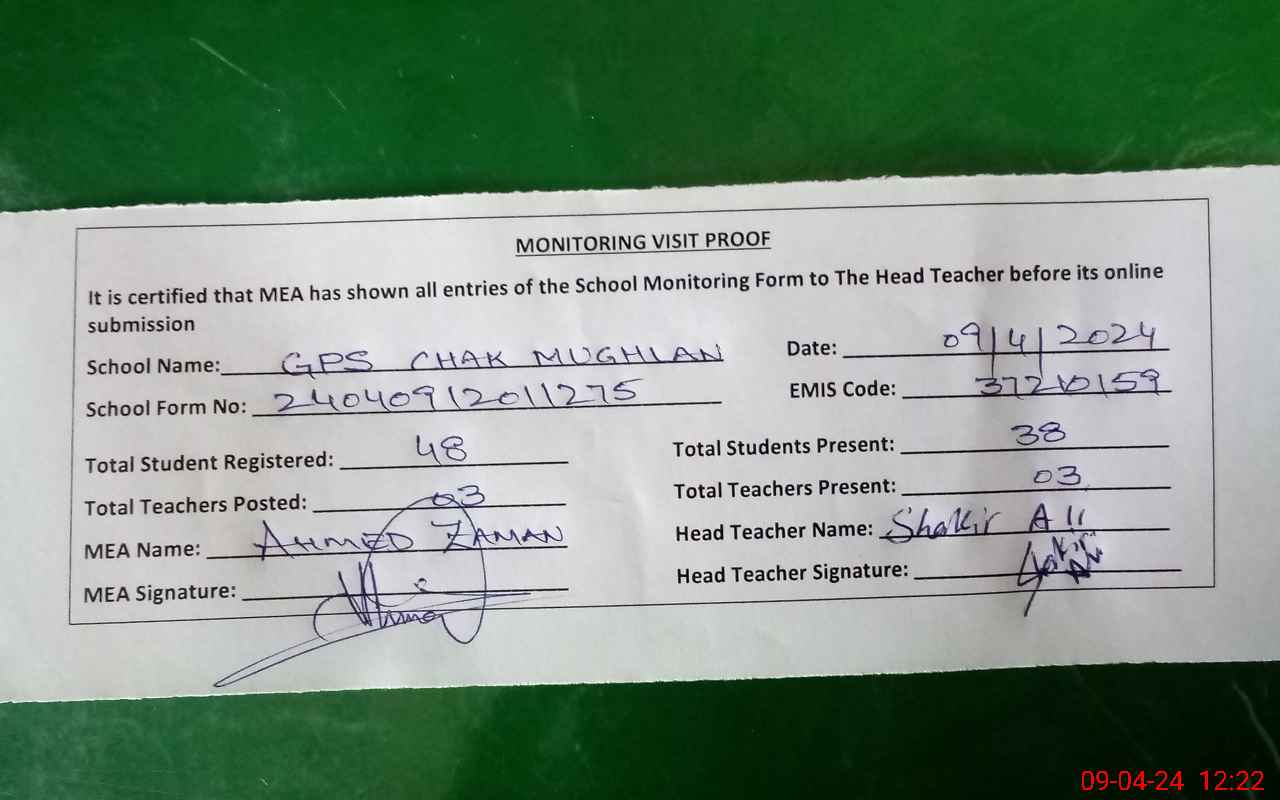 MONITORING VISIT PROOF
It is certified that MEA has shown all entries of the School Monitoring Form to The Head Teacher before its online
submission
School Name: GPS CHAK MUGHLAN Date: 09/4/2024
School Form No: 24040912011275 EMIS Code: 37210159
Total Student Registered: 48 Total Students Present: 38
Total Teachers Posted: 03 Total Teachers Present: 03
MEA Name: AHMED ZAMAN Head Teacher Name: Shakir Ali
MEA Signature: Head Teacher Signature:
09-04-24 12:22